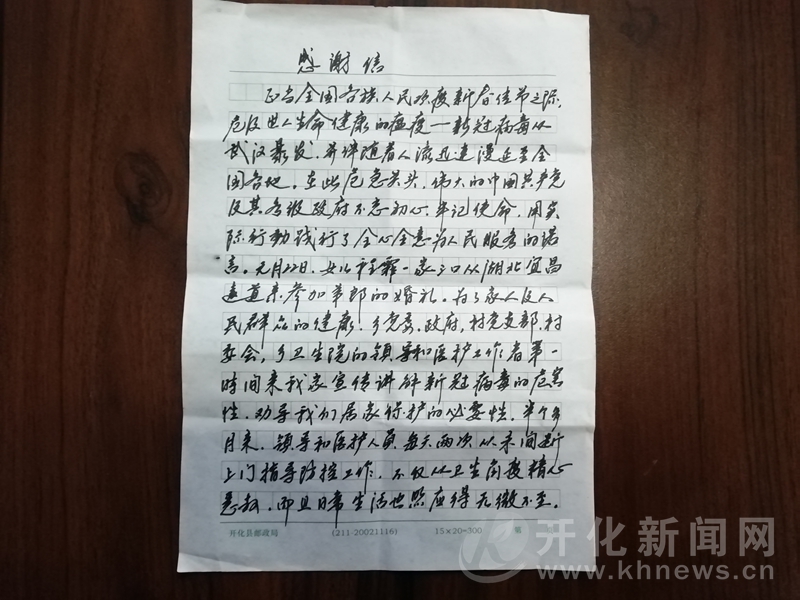 感谢信
正当全国各族人民欢度新春佳节之际,
危及世人生命健康的瘟疫一新冠病毒从
武汉暴发,并伴随着人流迅速漫延至全
国各地。在此危急关头,伟大的中国共产党
及其各级政府不忘初心、牢记使命,用实
际行动践行了全心全意为人民服务的诺
言。元月22日,女儿一家三口从湖北宜昌
远道来参加弟郎的婚礼。为了家人及人
民群众的健康,乡党委、政府,村党支部、村
委会,乡卫生院的领导和医护工作者第一
时间来我家宣传讲解新冠病毒的危害
性,劝导我们居家保护的必要性,半个多
月来,领导和医护人员每天两次从未间断
上门指导防控工作,不仅从卫生角度精心
,而且日常生活也照应得无微不至。
开化县邮政局 (211-20021116) 15×20=300 第
开化新闻网
www.khnews.cn